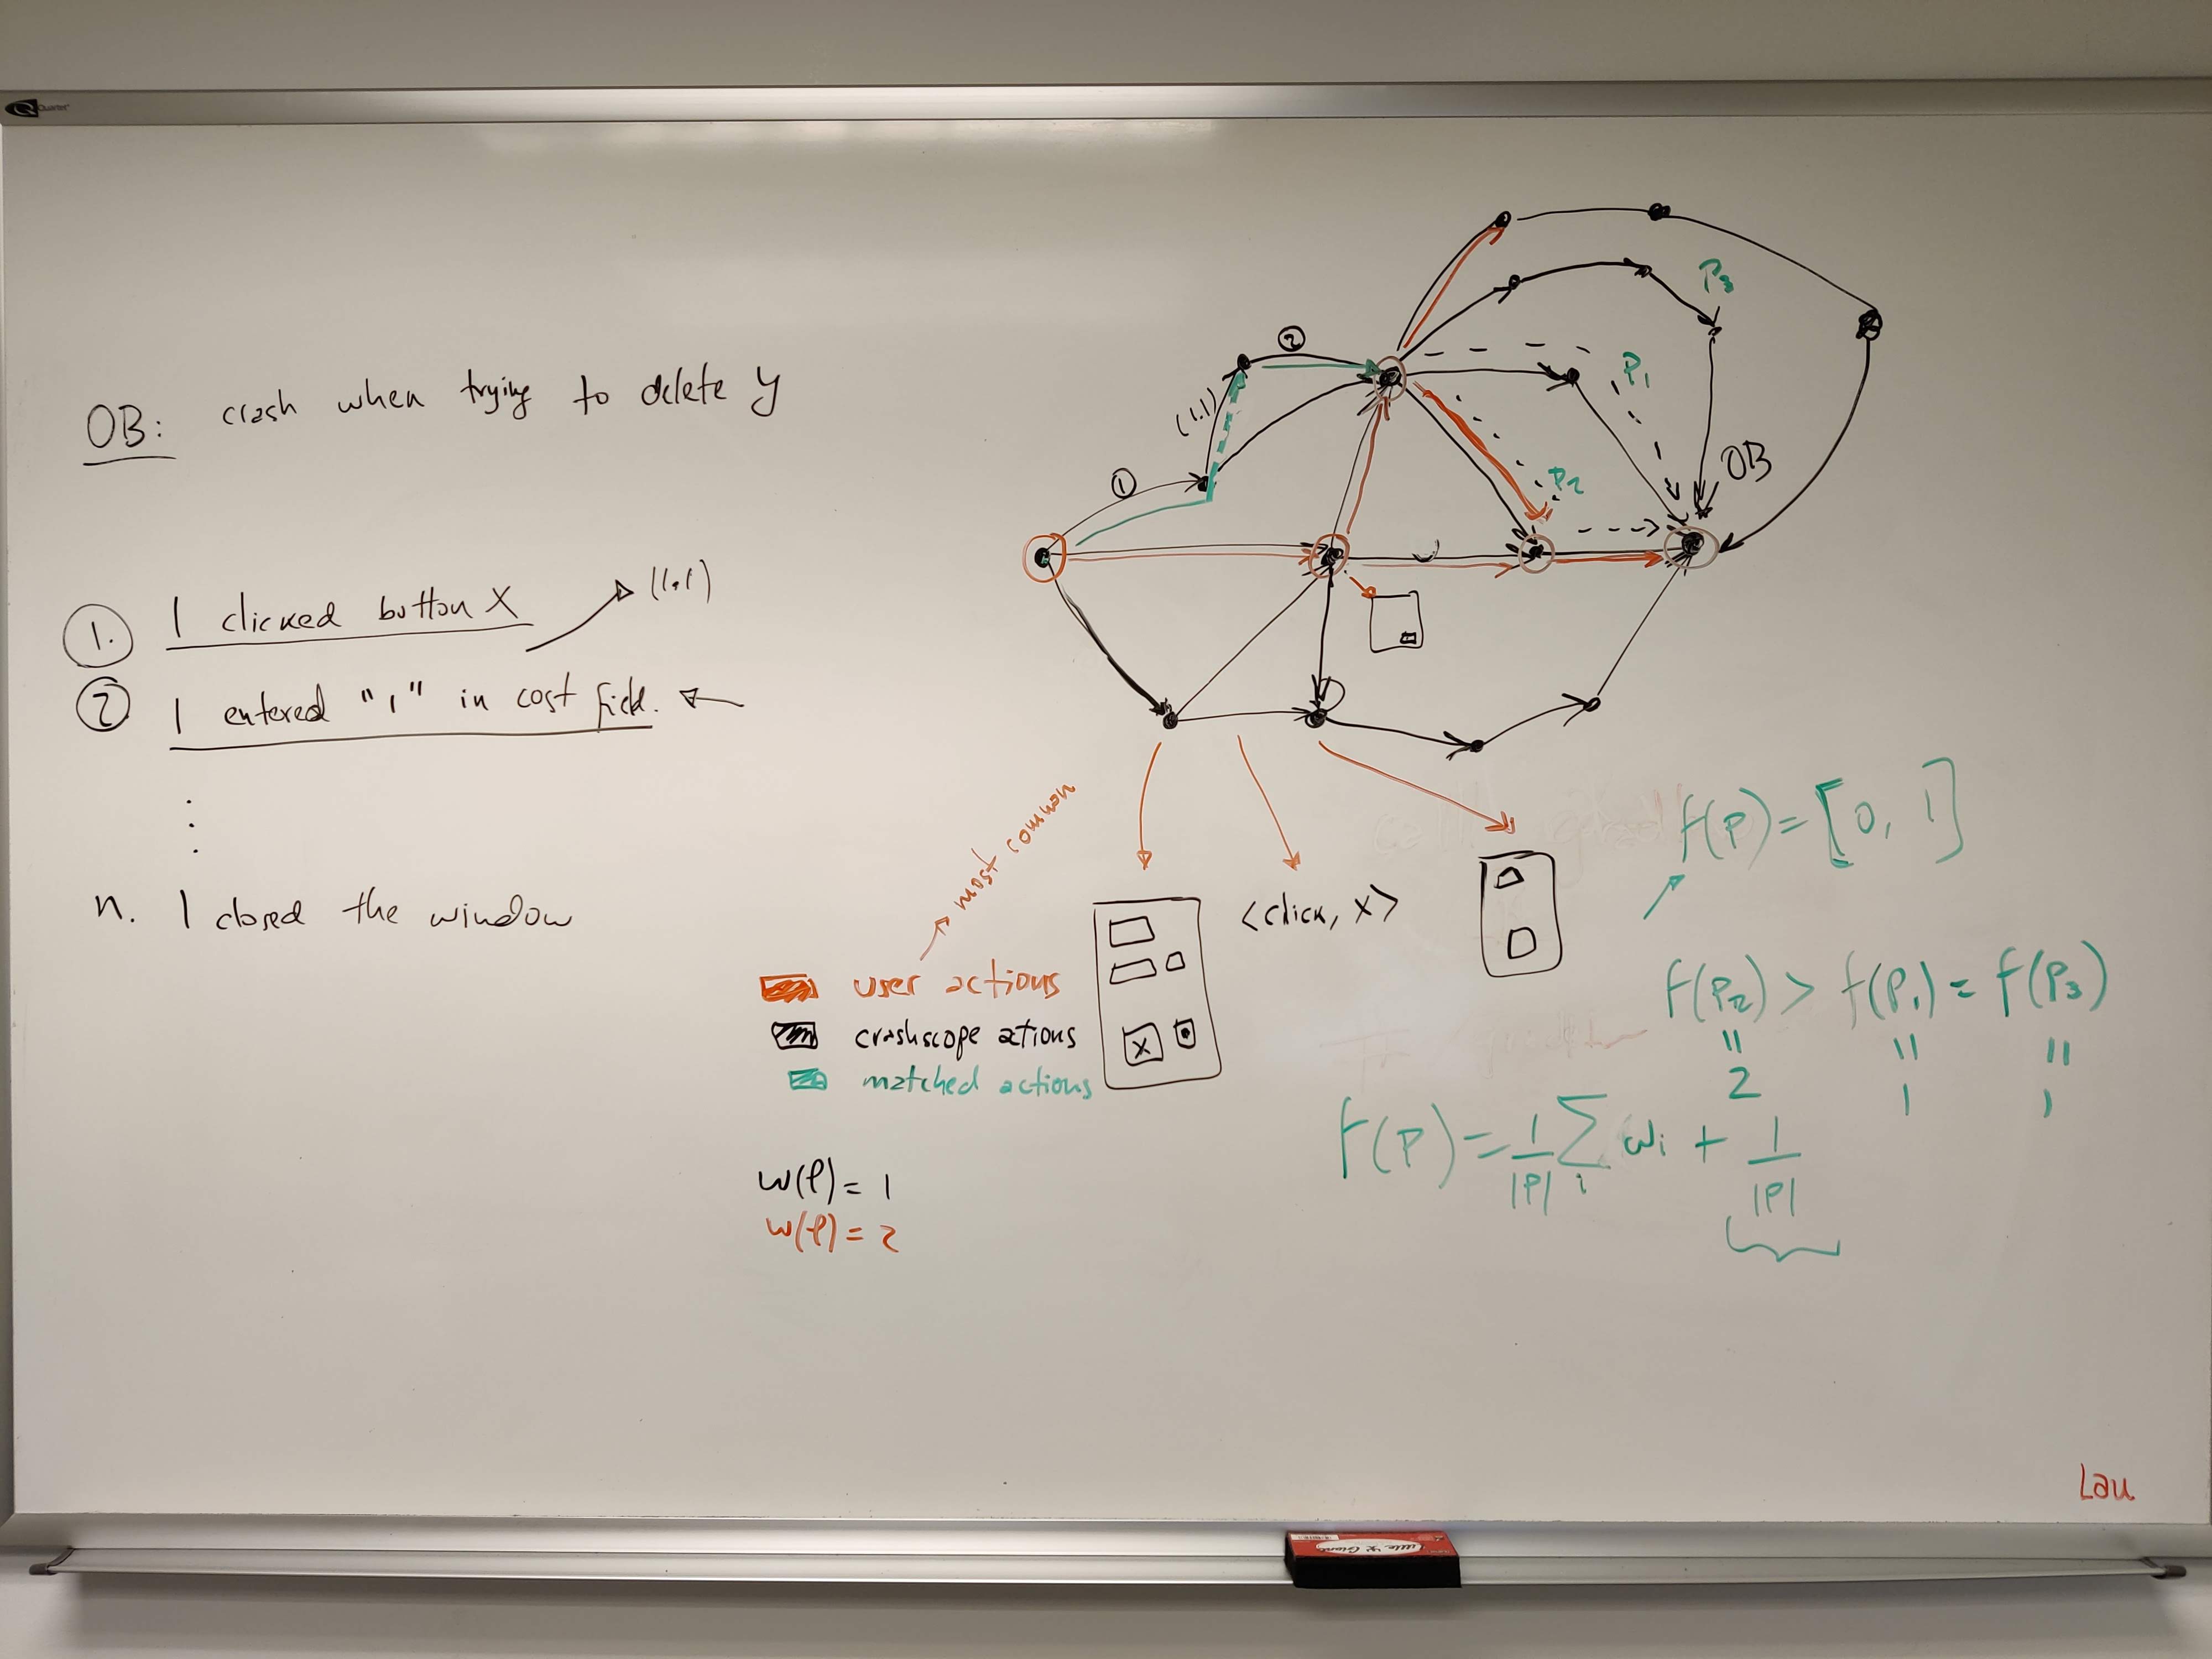 Quartet
OB: crash when trying to delete y
1. I clicked button X
(1.1)
2 I entered "1" in cost field.
n. I closed the window
1
(1.1)
2
P3
P1
P2
OB
most common
user actions
crashscope actions
matched actions
<click, x>
X
w(e) = 1
w(e) = 2
f(P) = [0, 1]
f(P2) > f(P1) = f(P3)
" " "
2 1 1
f(P) = 1/|P| Σ i wi + 1/|P|
Lau